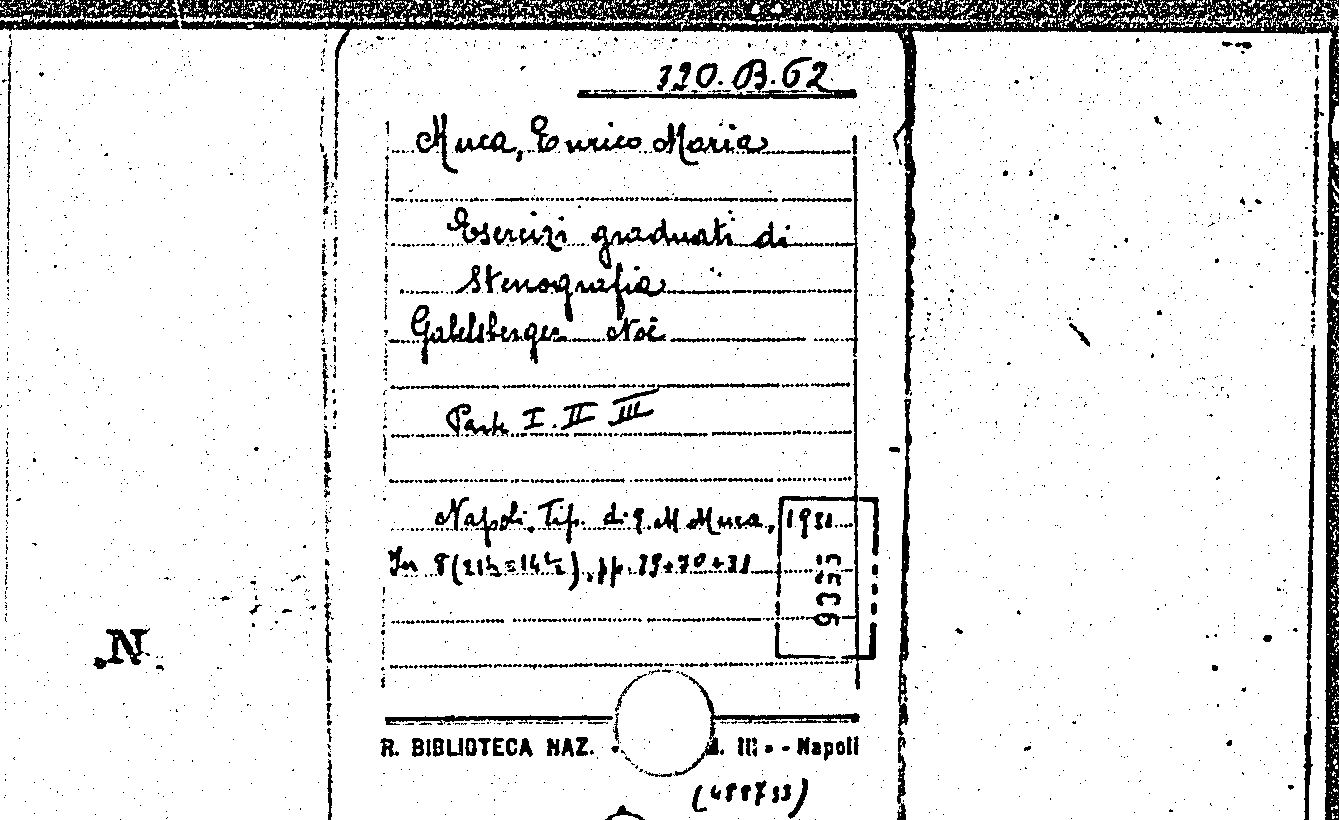 320.B.62
Muca, Enrico Maria
Esercizi graduati di
Stenografia
Gabelsberger Noë
Parte I. II III
Napoli, Tip. di E. M. Muca, 1931
In 8 (21½=14½), pp. 39+70+31
93553
N
R. BIBLIOTECA NAZ. III - Napoli
(488733)